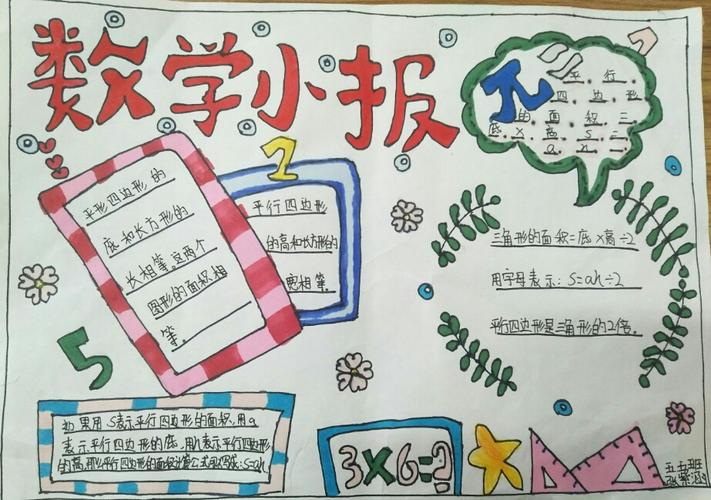 数学小报
平行
四边形
的面积三
底×高 s三
a h
平形四边形的
底和长方形的
长相等。这两个
图形的面积相
等。
2
平行四边形
的高和长方形的
宽相等。
三角形的面积=底×高÷2
用字母表示:S=ah÷2
平行四边形是三角形的2倍。
5
如果用S表示平行四边形的面积,用a
表示平行四边形的底,用h表示平行四边形
的高,那么平行四边形的面积计算公式可以写成:S=ah
3×6=?
五五班